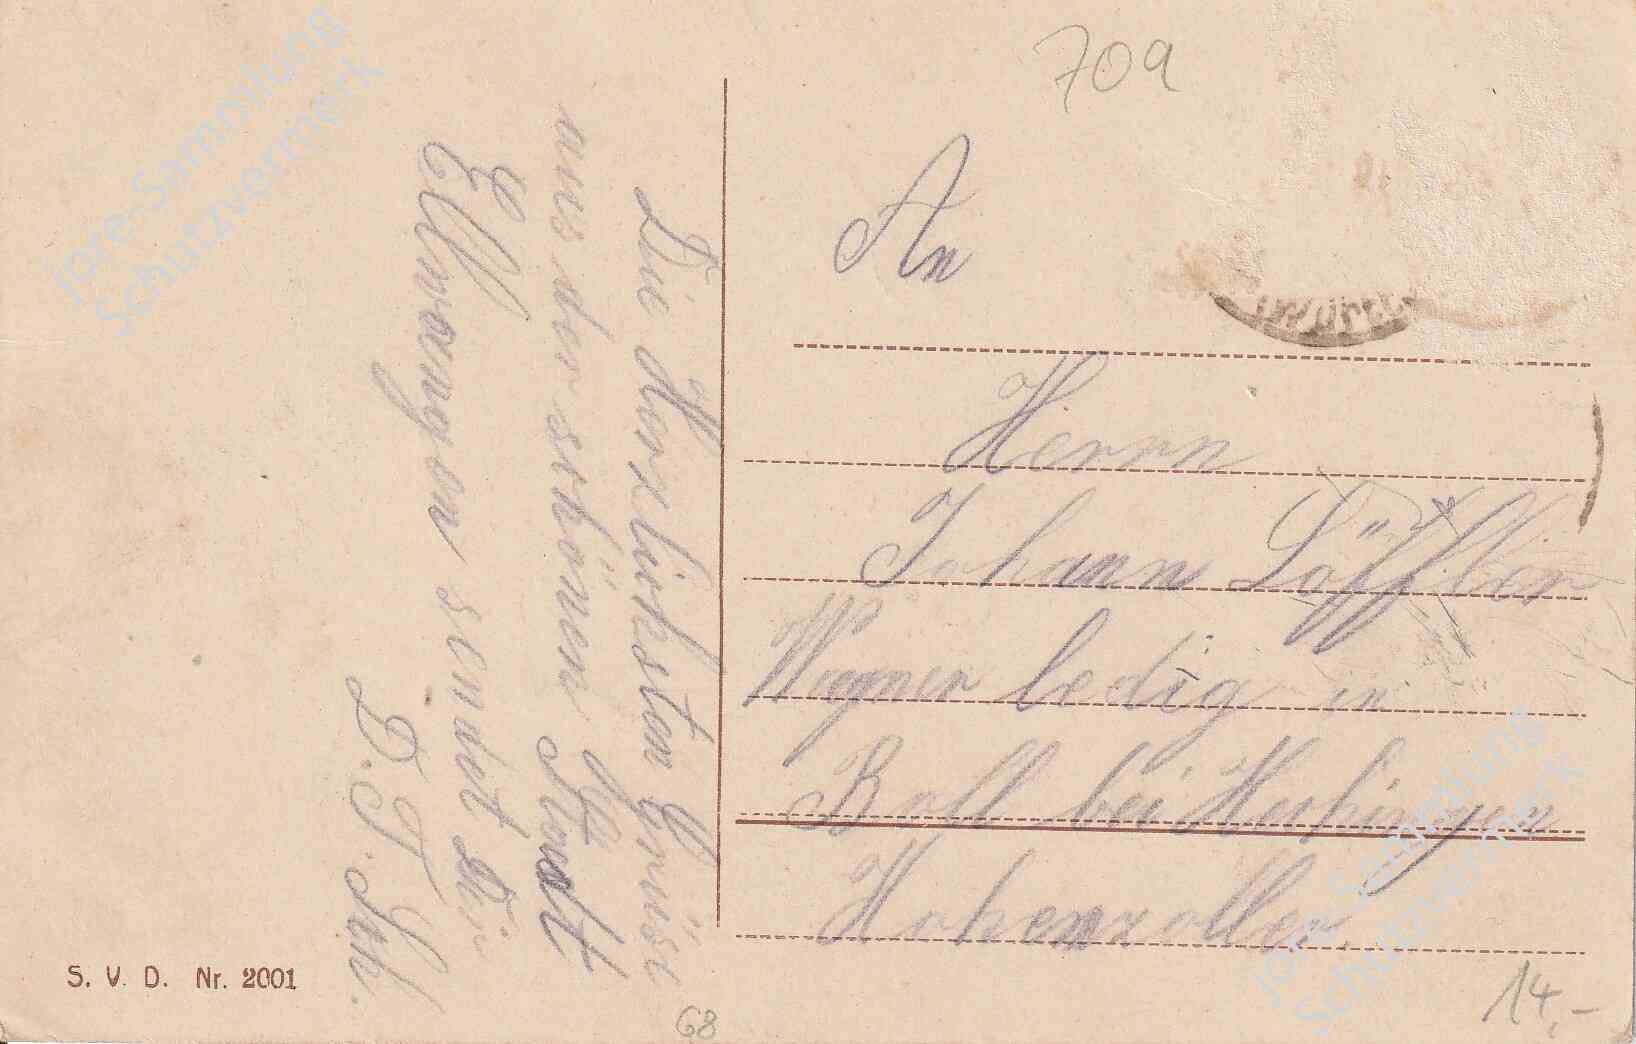 709
An
Herrn
Johann Löffler
Wagner ledig in
Boll bei Hechingen
Hohenzoller.
Die Herzlichsten Grüse
aus der schönen
Stadt
Ellwangen sendet Dir
D. T. Sch.
S. V. D. Nr. 2001
68
14,-
jore-Sammlung
Schutzvermerk
jore-Sammlung
Schutzvermerk